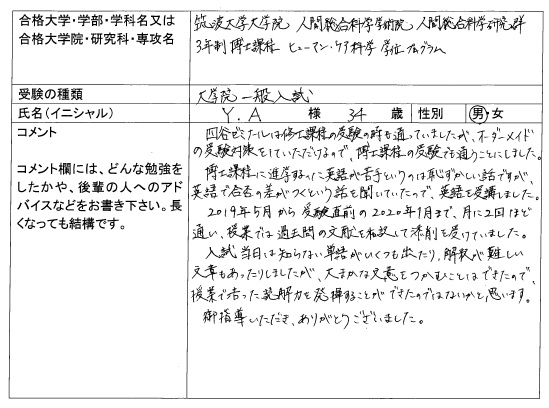 合格大学・学部・学科名又は
合格大学院・研究科・専攻名
筑波大学大学院 人間総合科学学術院 人間総合科学研究群
3年制博士課程 ヒューマン・ケア科学 学位プログラム
受験の種類
大学院一般入試
氏名(イニシャル)
Y.A 様 34 歳 性別 男・女
コメント
コメント欄には、どんな勉強を
したかや、後輩の人へのアド
バイスなどをお書き下さい。長
くなっても結構です。
四谷ゼミナールは修士課程の受験の時も通っていましたが、オーダーメイド
の受験対策をしていただけるので、博士課程の受験でも通うことにしました。
博士課程に進学するのに英語が苦手というのは恥ずかしい話ですが、
英語で合否の差がつくという話を聞いていたので、英語を受講しました。
2019年5月から受験直前の2020年1月まで、月に2回ほど
通い、授業では過去問の文献を和訳して添削を受けていました。
入試当日は知らない単語がいくつも出たり、解釈が難しい
文章もあったりしましたが、大まかな文意をつかむことはできたので、
授業で培った読解力を発揮することができたのではないかと思います。
御指導いただき、ありがとうございました。